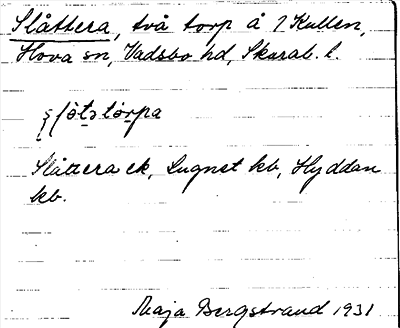 Slåttera, två torp å 1 Kullen,
Hova sn, Vadsbo hd, Skarab. l.
Slåttera ek, Lugnet kb, Hyddan
kb.
Maja Bergstrand 1931